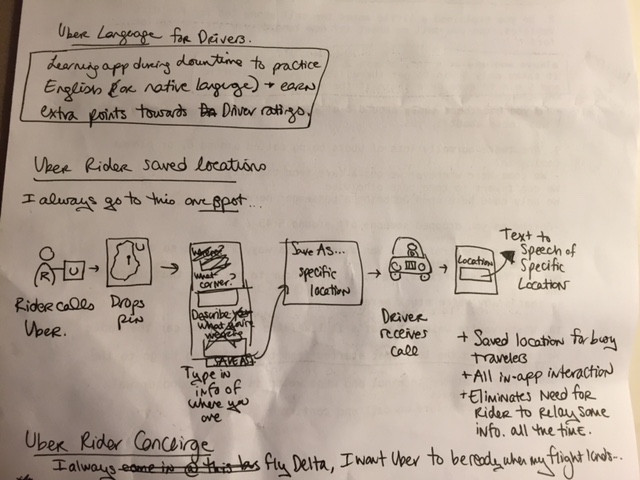 Uber Language for Drivers.
Learning app during downtime to practice
English (or native language) + earn
extra points towards Driver ratings.
Uber Rider Saved Locations
I always go to this one spot...
Rider calls
Uber.
R
U
Drops
pin
U
Where?
What
corner?
Describe
what you're
wearing
SAVE AS
Type in
info of
where you
are
Save As...
specific
location
Driver
receives
call
U
Location
Text to
Speech of
Specific
Location
+ Saved location for busy
travelers
+ All in-app interaction
+ Eliminates need for
Rider to relay same
info. all the time.
Uber Rider Conceirge
I always come in @ this fly Delta, I want Uber to be ready when my flight lands...